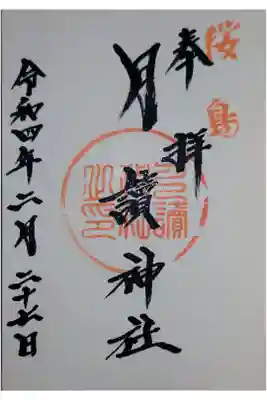 桜島
奉拝
月讀神社
令和四年二月二十七日